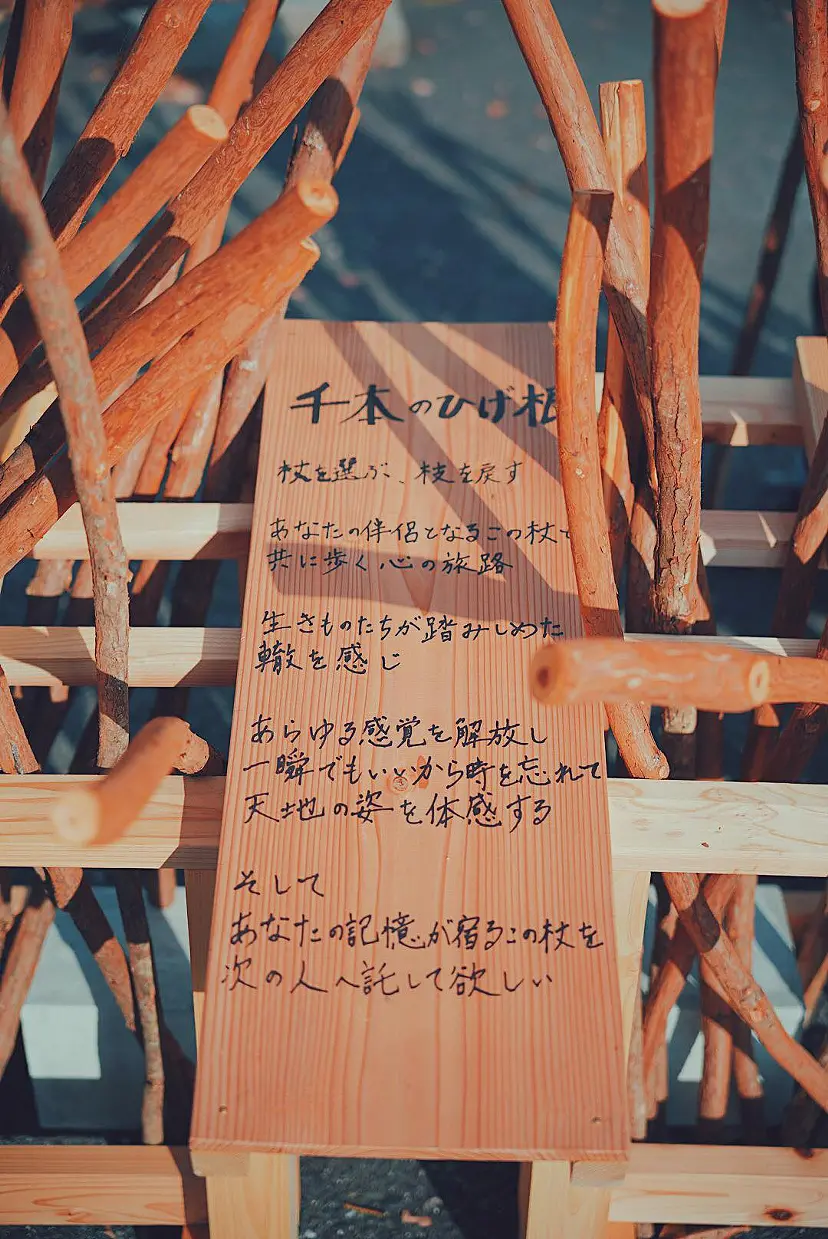 千本のひげ根
杖を選ぶ、杖を戻す
あなたの伴侶となるこの杖と
共に歩く心の旅路
生きものたちが踏みしめた
轍を感じ
あらゆる感覚を解放し
一瞬でもいいから時を忘れて
天地の姿を体感する
そして
あなたの記憶が宿るこの杖を
次の人へ託して欲しい